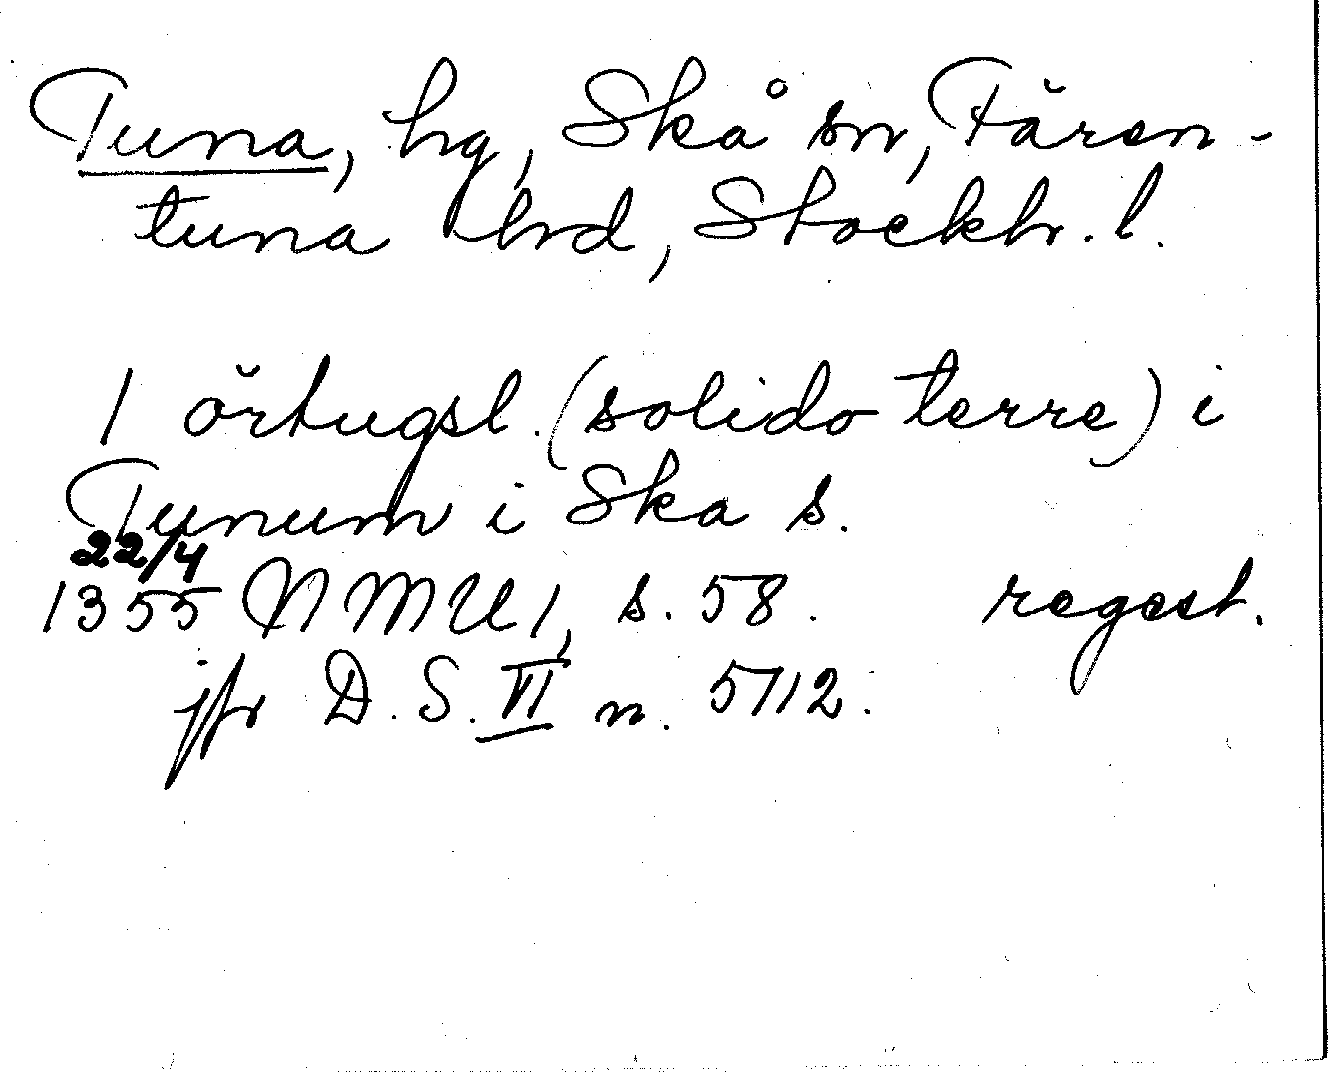 Tuna, hg, Skå sn, Fären-
tuna hrd, Stockh. l.
1 örtugsl. (solido terre) i
Tunum i Ska s.
22/4
1355 NMU 1, s. 58. regest.
jfr D. S. VI n. 5712.